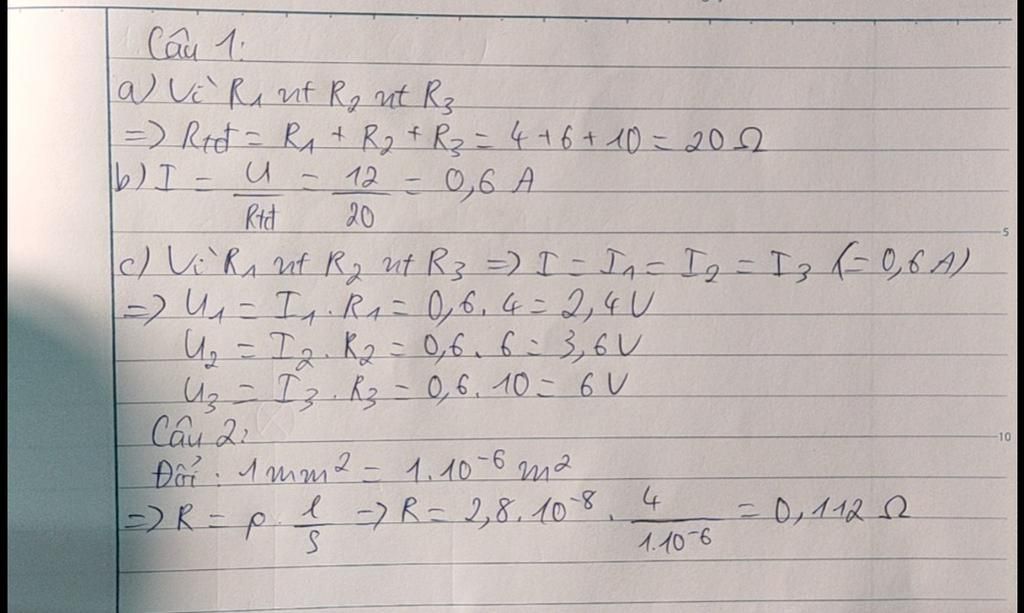 Câu 1:
a) Vì R₁ nt R₂ nt R₃
=> Rtđ = R₁ + R₂ + R₃ = 4 + 6 + 10 = 20 Ω
b) I = U/Rtđ = 12/20 = 0,6 A
c) Vì R₁ nt R₂ nt R₃ => I = I₁ = I₂ = I₃ (= 0,6 A)
=> U₁ = I₁ . R₁ = 0,6 . 4 = 2,4 V
U₂ = I₂ . R₂ = 0,6 . 6 = 3,6 V
U₃ = I₃ . R₃ = 0,6 . 10 = 6 V
Câu 2:
Đổi : 1 mm² = 1.10⁻⁶ m²
=> R = ρ . l/S => R = 2,8.10⁻⁸ . 4/1.10⁻⁶ = 0,112 Ω
5
10